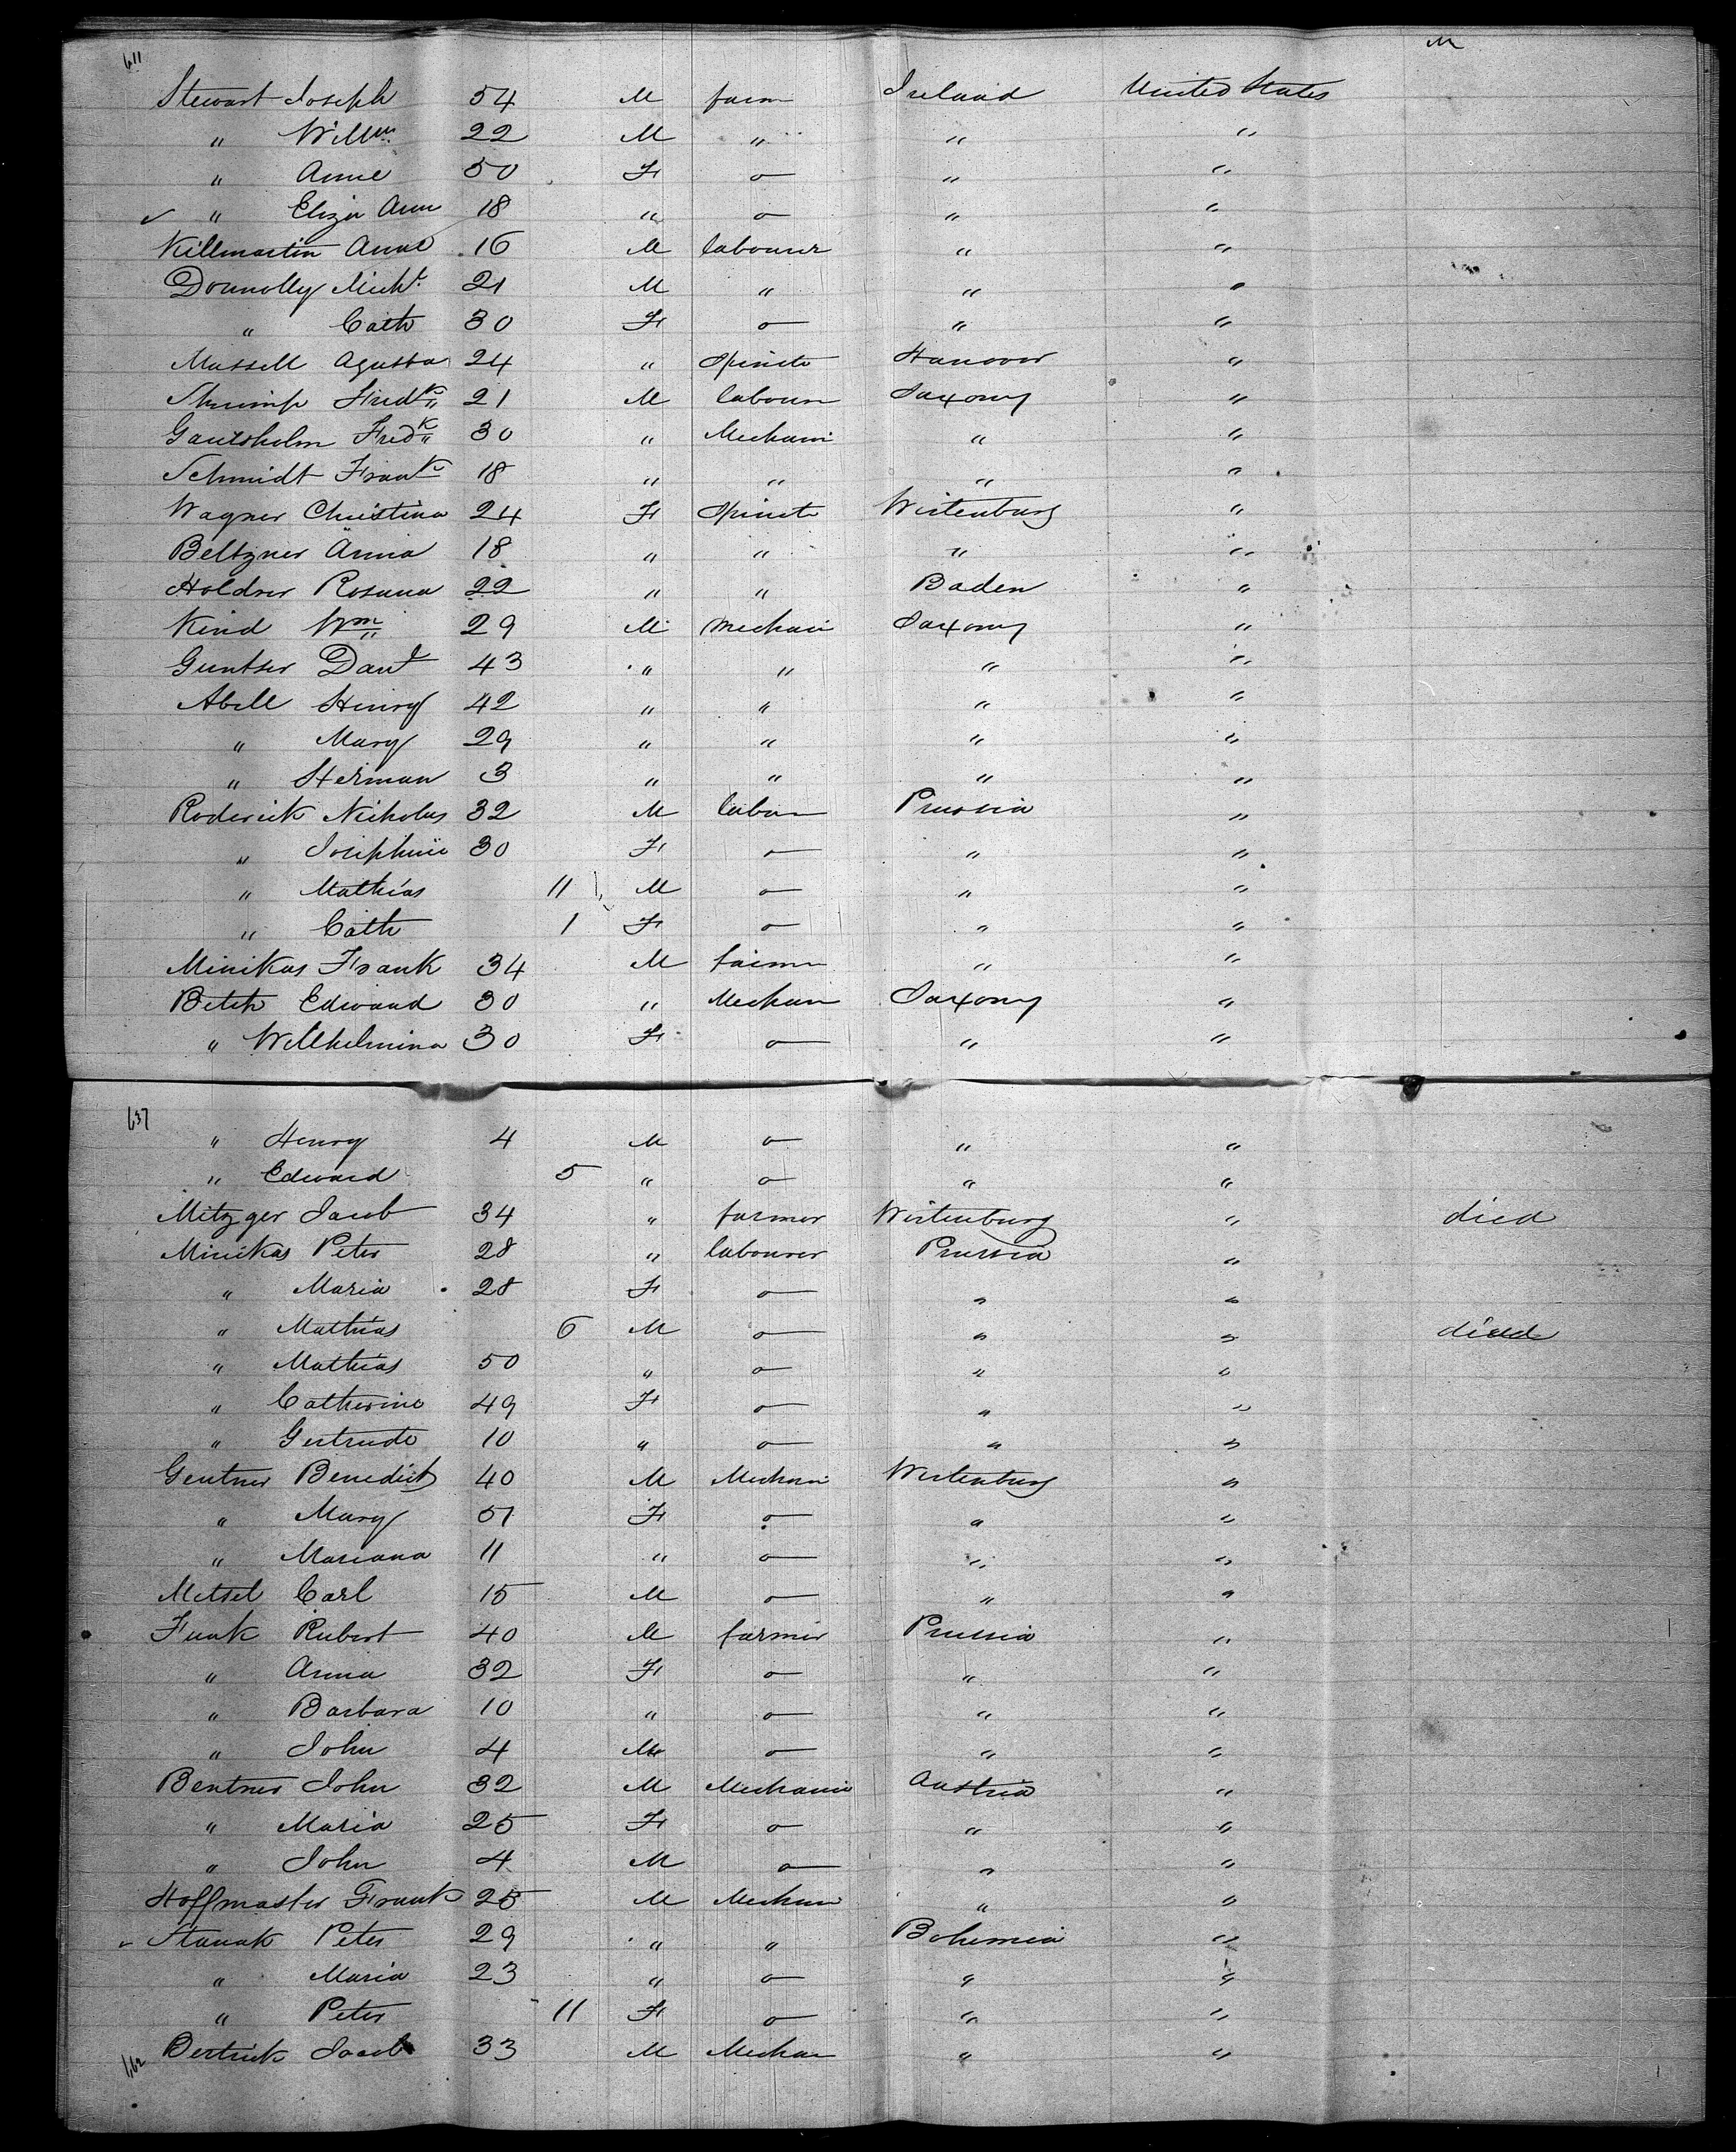 611 M
Stewart Joseph 54 M farm Ireland United States
" Willm 22 M " " "
" Anne 50 F o " "
✓ " Eliza Ann 18 " o " "
Killmartin Anne 16 M labourer " "
Donnolly Michl 21 M " " "
" Cath 30 F o " "
Mussell Agusta 24 " Spinst Hanover "
Shrimp Fredk 21 M labour Saxony "
Gautsholm Fredk 30 " Mechani " "
Schmidt Frank 18 " " " "
Wagner Christina 24 F Spinst Wirtenburg "
Beltzner Anna 18 " " " "
Holdner Rosanna 22 " " Baden "
Kind Wm 29 M mechani Saxony "
Guntser Danl 43 " " " "
Abell Henry 42 " " " "
" Mary 29 " " " "
" Herman 3 " " " "
Roderick Nicholas 32 M labour Prussia "
" Josephine 30 F o " "
" Mathias 11 M o " "
" Cath 1 F o " "
Minikas Frank 34 M farmer " "
Betch Edward 30 " Mechan Saxony "
" Willhelmina 30 F o " "
637
" Henry 4 M o " "
" Edward 5 " o " "
Mitzger Jacob 34 " farmer Wirtenburg " died
Minikas Peter 28 " labourer Prussia "
" Maria 28 F o " "
" Mathias 6 M o " " died
" Mathias 50 " o " "
" Catherine 49 F o " "
" Gertrude 10 " o " "
Gentner Benedict 40 M Mechani Wirtenburg "
" Mary 51 F o " "
" Mariana 11 " o " "
Metsel Carl 15 M o " "
Funk Rubert 40 M farmer Prussia "
" Anna 32 F o " "
" Barbara 10 " o " "
" John 4 M o " "
Bentner John 32 M Mechanic Austria "
" Maria 25 F o " "
" John 4 M o " "
Hoffmaster Frank 25 M Mechan " "
✓ Stanak Peter 29 " " Bohemia "
" Maria 23 " o " "
" Peter 11 F o " "
662 Bertrick Jacob 33 M Mechan " "